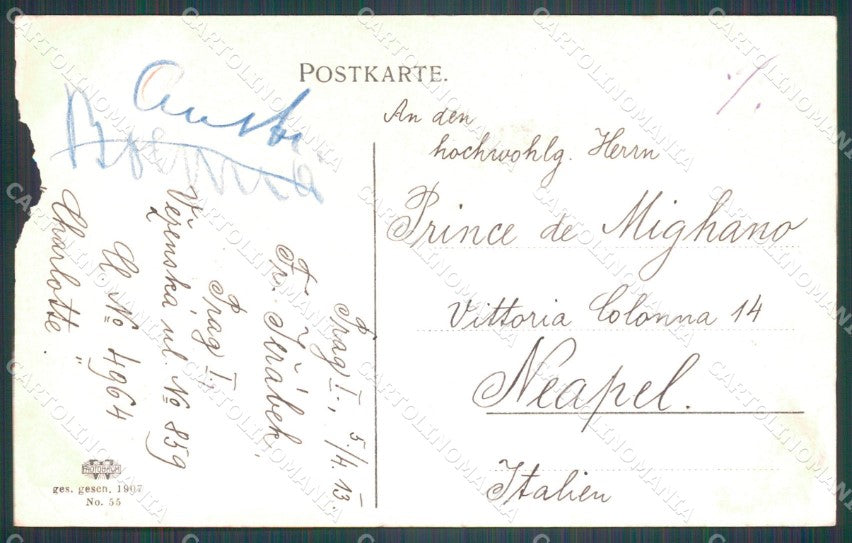 POSTKARTE.
An den
hochwohlg. Herrn
Prince de Mighano
Vittoria Colonna 14
Neapel.
Italien
Prag I., 5/4. 13
Fr. Jeřábek,
Prag I.,
Vězenská ul. № 859
№ 4964
"Charlotte".
PHOTOBROM
ges. gesch. 1907
No. 55
CARTOLINOMANIA